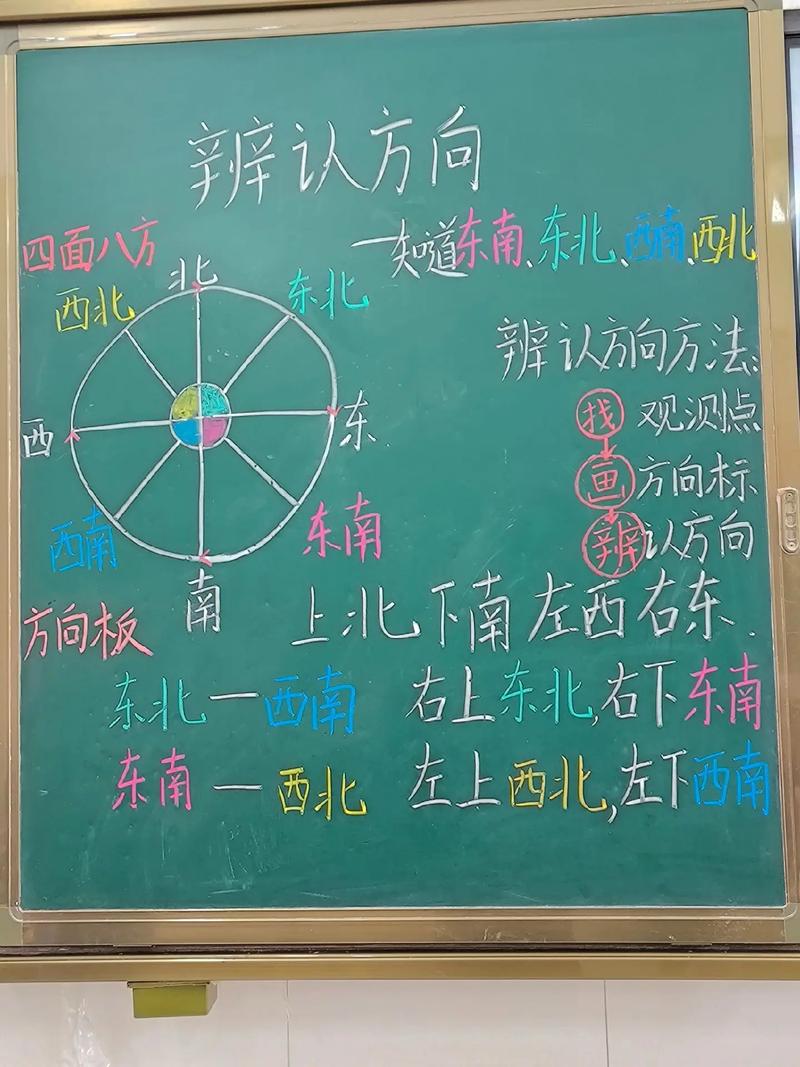 辨认方向
四面八方
一知道东南、东北、西南、西北
北
西北
东北
西
东
西南
东南
南
方向板
辨认方向方法:
找 观测点
画 方向标
辨认方向
上北下南左西右东.
东北—西南
右上东北,右下东南
东南—西北
左上西北,左下西南